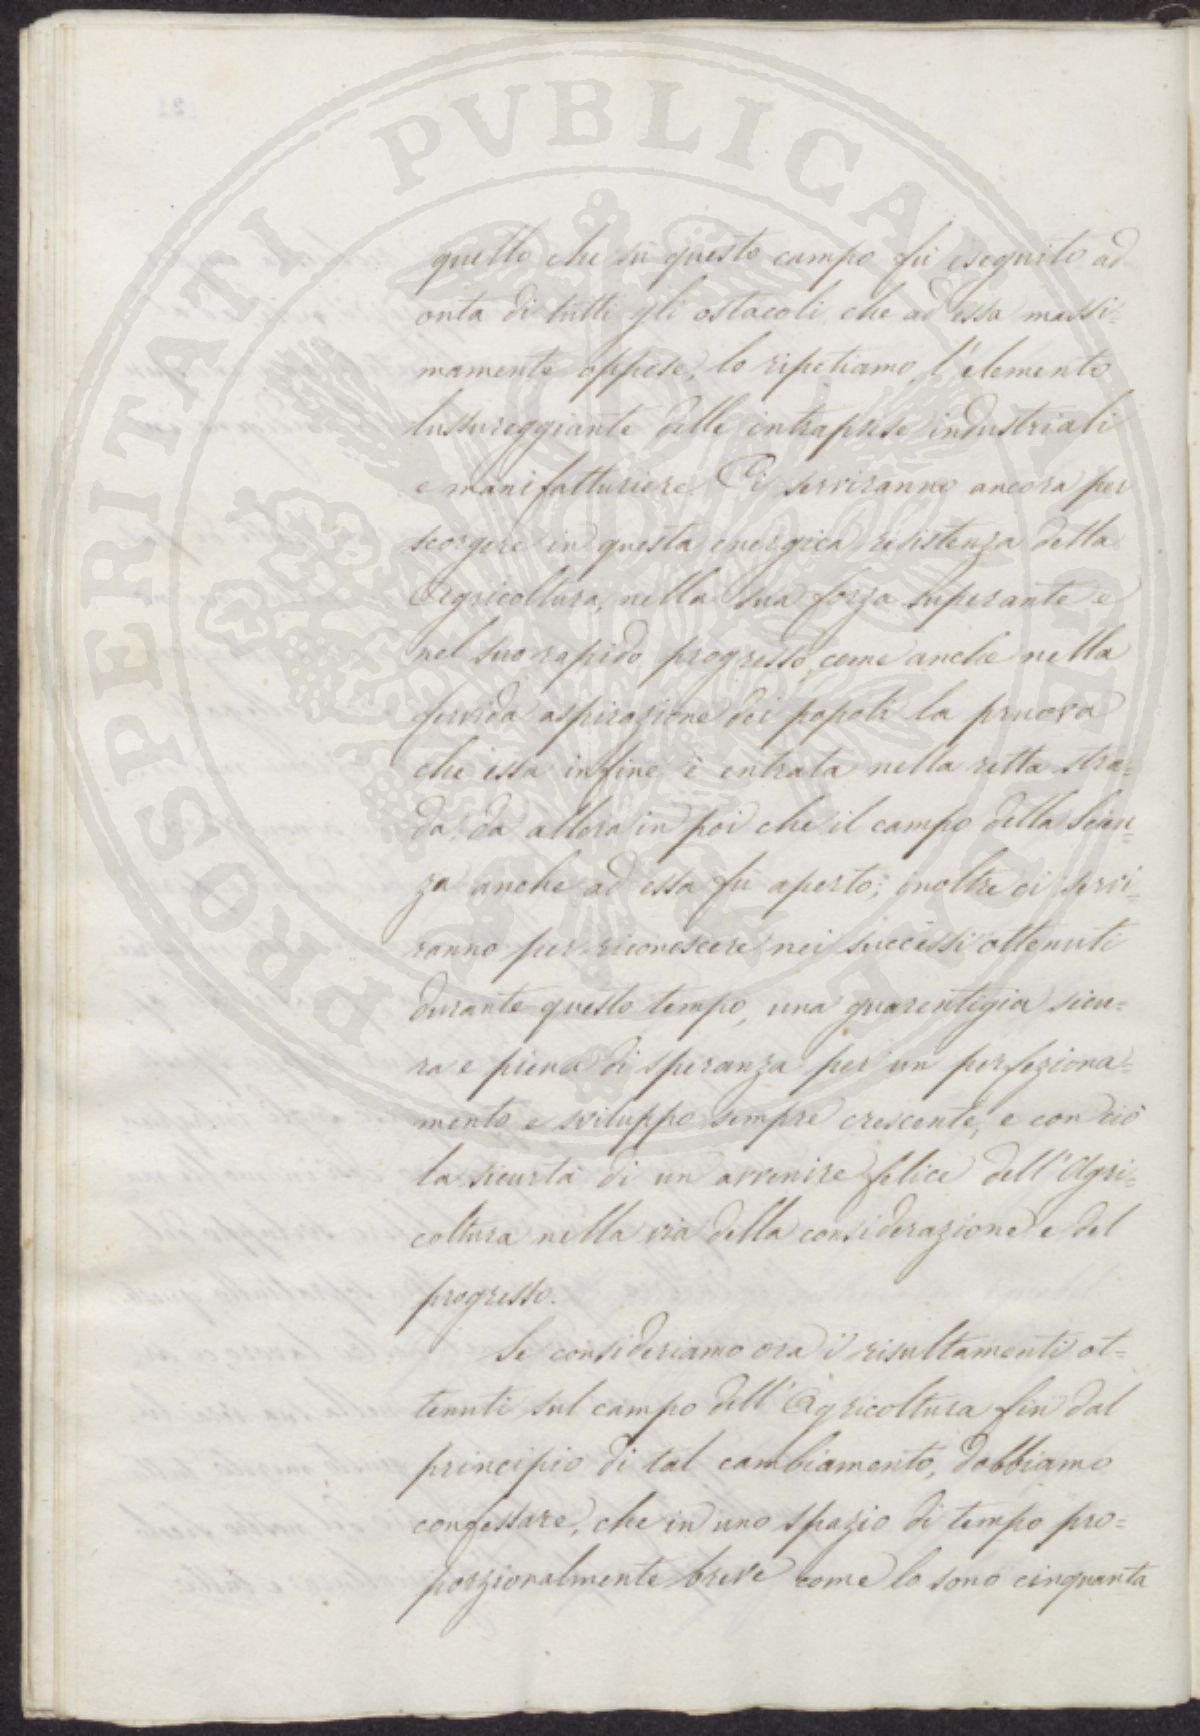 PROSPERITATI PVBLICAE AVGENDAE
quello che sù questo campo fù eseguito ad
onta di tutti gli ostacoli che ad essa massi=
mamente oppose, lo ripetiamo, l'elemento
lussureggiante delle intraprese industriali
e manifatturiere. Ci serviranno ancora per
scorgere in questa energica resistenza della
Agricoltura, nella sua forza superante e
nel suo rapido progresso, come anche nella
fervida aspirazione dei popoli la pruova
che essa infine è entrata nella retta stra=
da, da allora in poi che il campo della Scien=
za anche ad essa fù aperto; inoltre ci servi=
ranno per riconoscere nei successi ottenuti
durante questo tempo, una guarentigia sicu=
ra e piena di speranza per un perfeziona=
mento e sviluppo sempre crescente, e con ciò
la sicurtà di un avvenire felice dell'Agri=
coltura nella via della considerazione e del
progresso.
Se consideriamo ora i risultamenti ot=
tenuti sul campo dell'Agricoltura fin dal
principio di tal cambiamento, dobbiamo
confessare, che in uno spazio di tempo pro=
porzionalmente breve come lo sono cinquanta